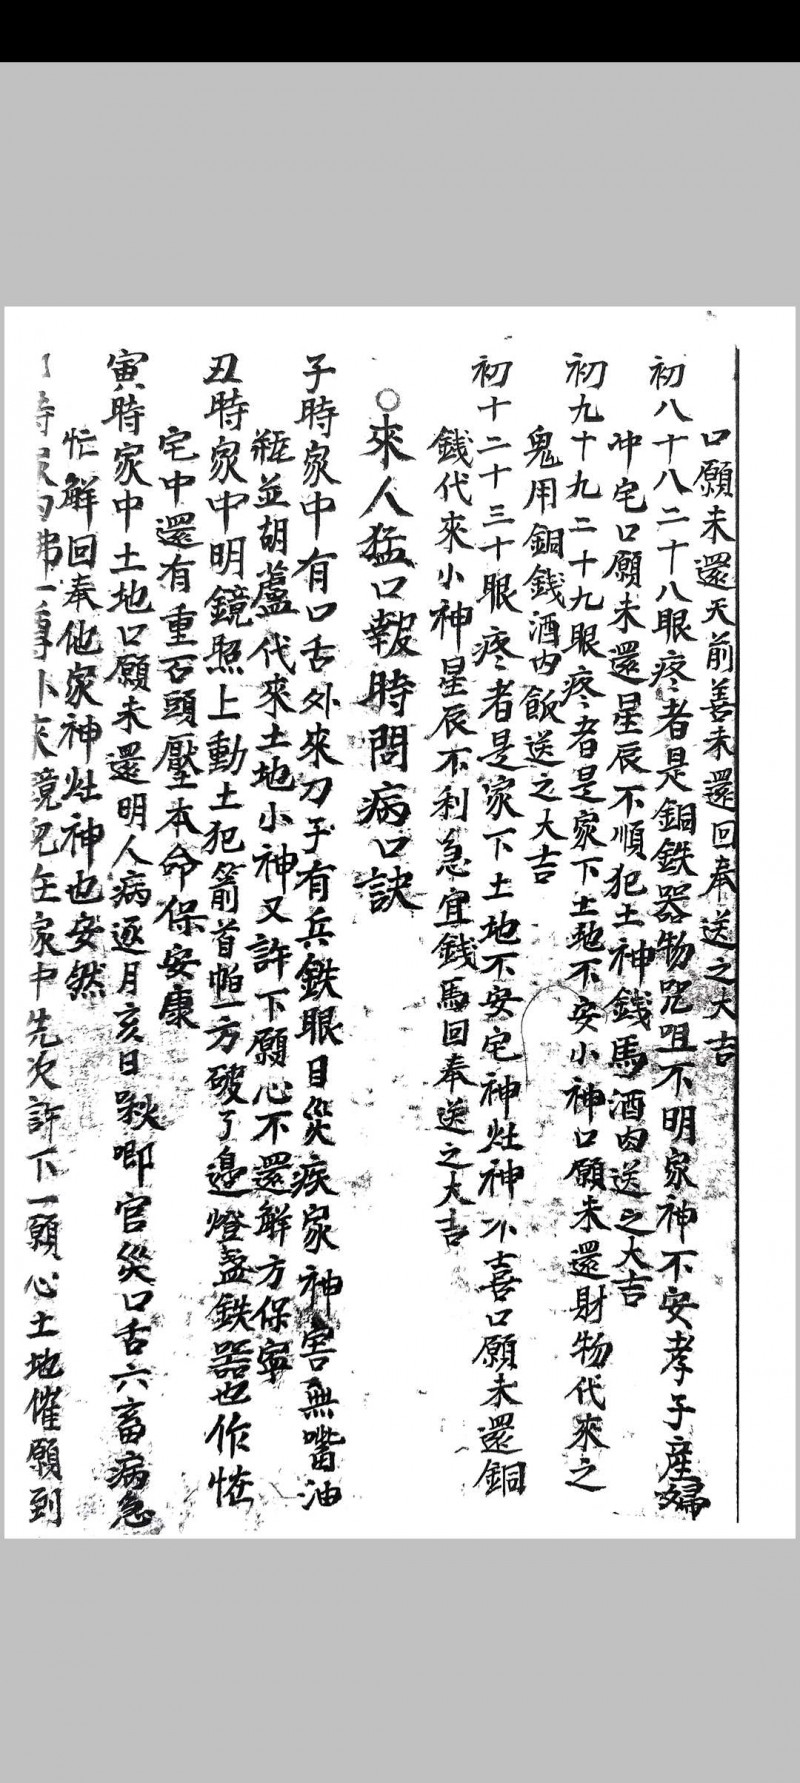 口願未還天前善未還回奉送之大吉
初八十八二十八眼疼者是銅鉄器物咒咀不明家神不安孝子産婦
冲宅口願未還星辰不順犯土神錢馬酒肉送之大吉
初九十九二十九眼疼者是家下土地不安小神口願未還財物代來之
鬼用銅錢酒肉飯送之大吉
初十二十三十眼疼者是家下土地不安宅神灶神不喜口願未還銅
錢代來小神星辰不利急宜錢馬回奉送之大吉
○來人猛口報時問病口訣
子時家中有口舌外來刀子有兵鉄眼目災疾家神害無嘴油
瓶並胡蘆代來土地小神又許下願心不還解方保寧
丑時家中明鏡照上動土犯箭首帕一方破了邊燈盞鉄器也作怪
宅中還有重石頭壓本命保安康
寅時家中土地口願未還明人病逐月亥日啾唧官災口舌六畜病急
忙解回奉他家神灶神也安然
時家内佛一尊卜來鏡兒在家中先次許下一願心土地催願到